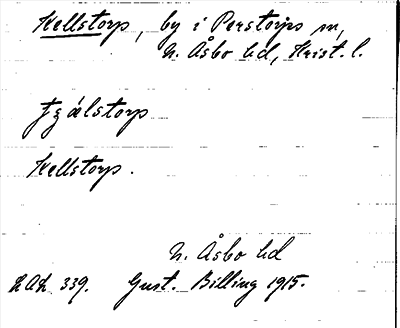 Kellstorp, by i Perstorps sn,
N. Åsbo hd, Krist. l.
Kellstorp.
N. Åsbo hd
LAL 339. Gust. Billing 1915.